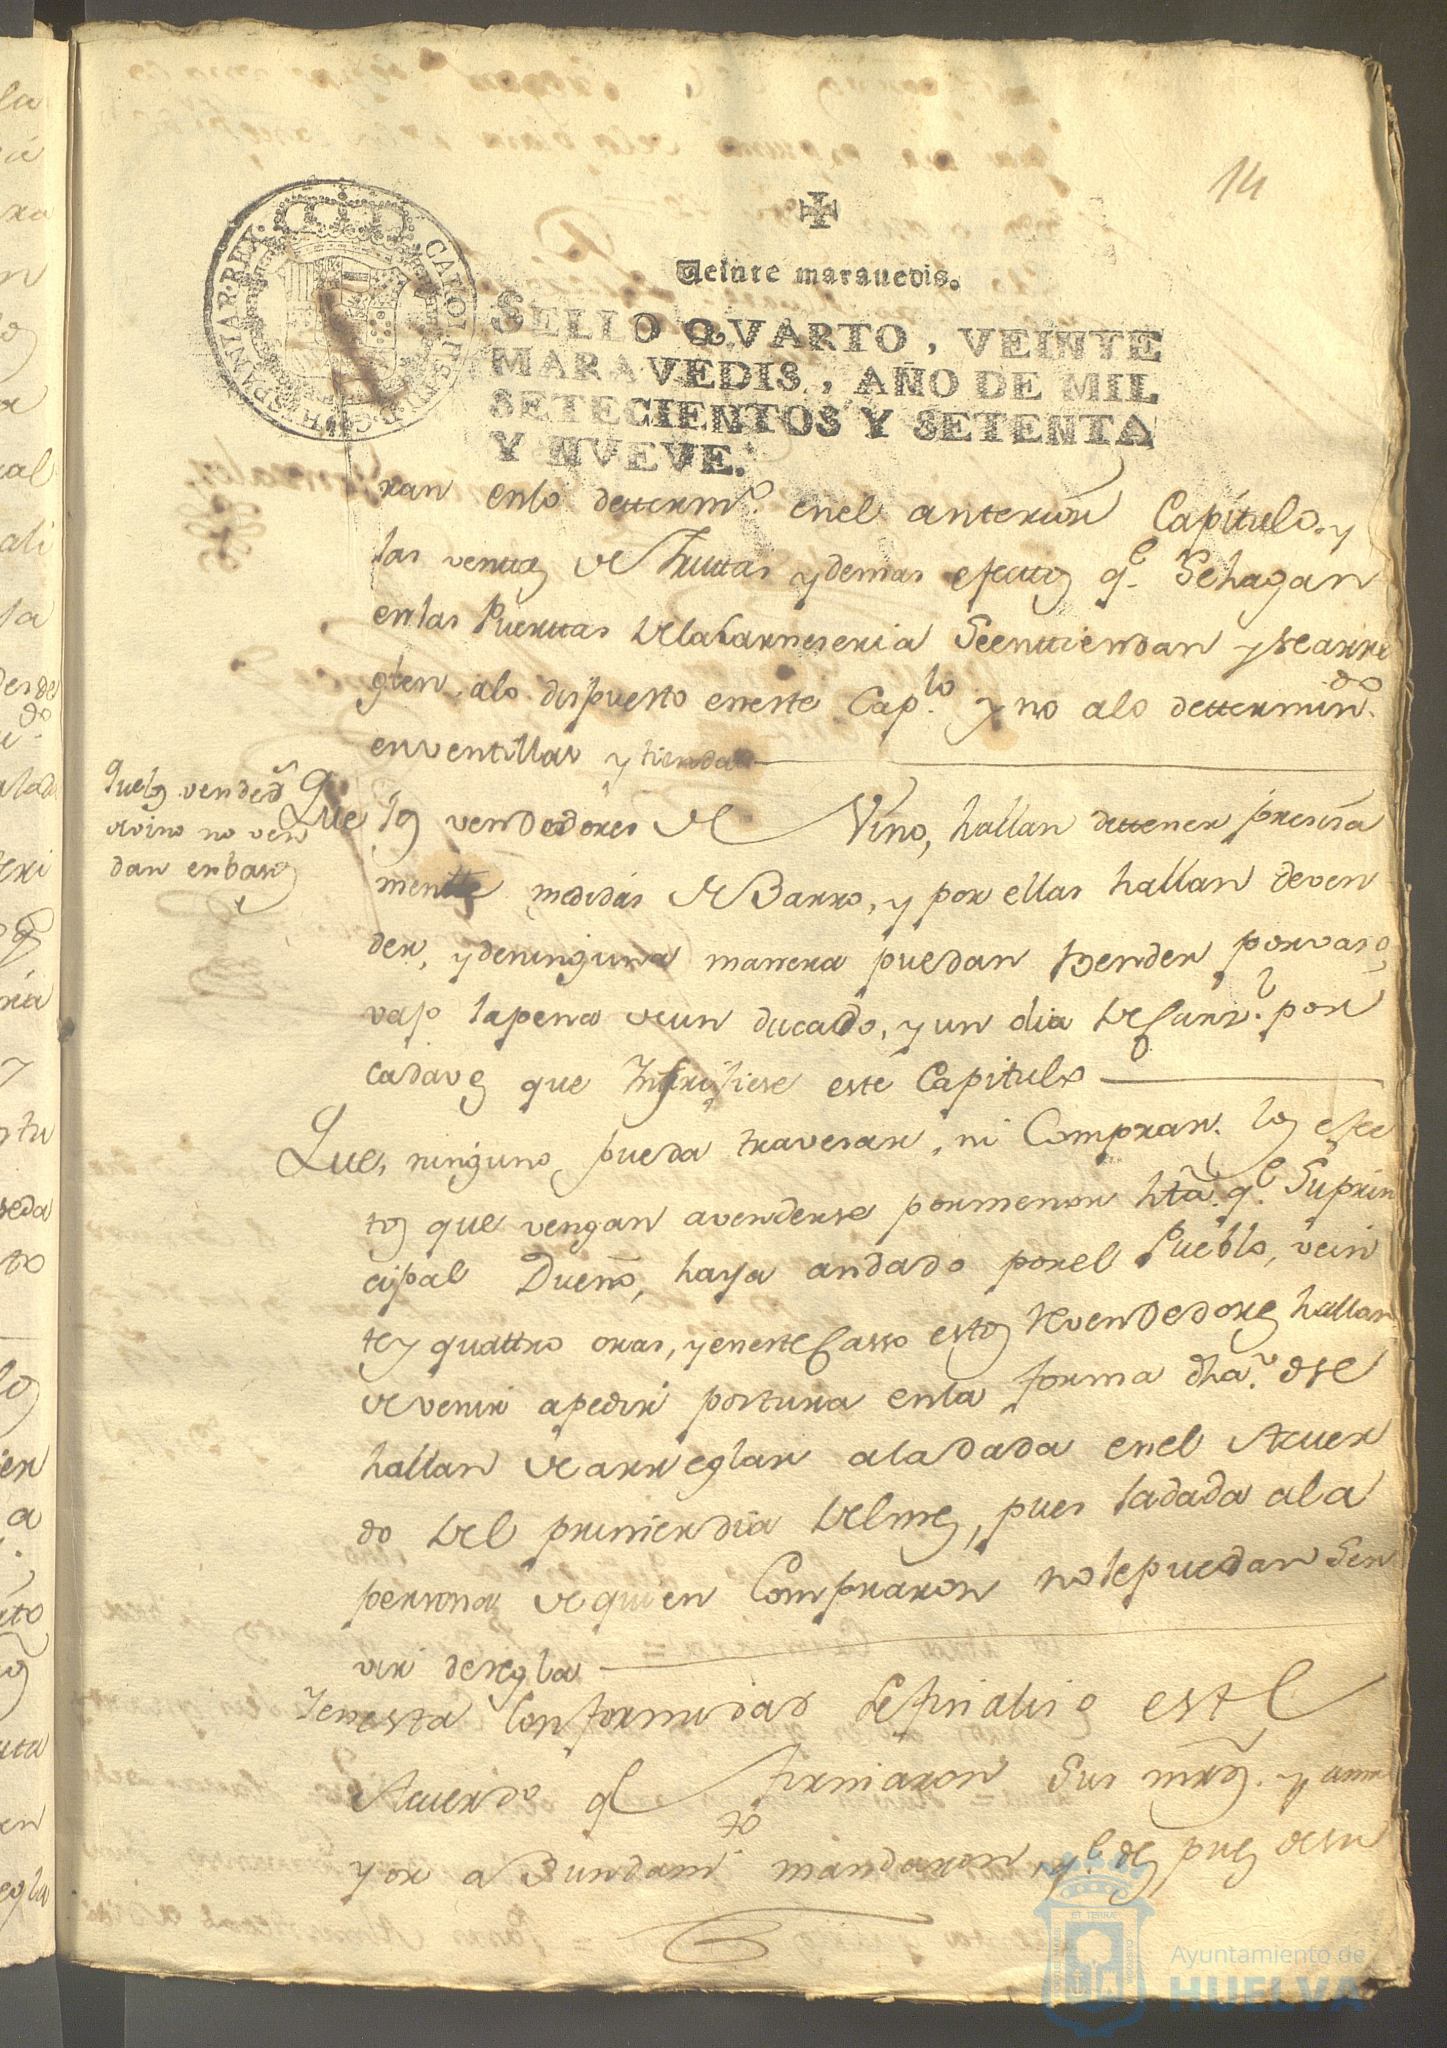 14
Veinte marauedis.
SELLO QVARTO, VEINTE
MARAVEDIS, AÑO DE MIL
SETECIENTOS Y SETENTA
Y NUEVE.
CAROLUS III D.G. HISPANIAR. REX.
ran enlo dettermo. enel anterior Capitulo, y
las ventas de fruttas y demas efectos qe. Sehagan
enlas Puerttas dela Carneseria Seenttiendan y se arre
glen alo dispuesto eneste Caplo. y no alo dettermindo.
enventillas y tiendas
Quelos vendeds
de vino no ven
dan en basos
Que los vendedores de Vino, hallan dettener presisa
mentte medidas de Barro, y por ellas hallan deven
der, y deninguna manera puedan Bender por vasos,
vajo lapena deun ducado, y un dia de Carzl. por
cadaves que Infrijiese este Capitulo
Que, ninguno pueda travesar, ni Comprar. los efec
tos que vengan avenderse pormenor htã. qe. Suprin
cipal Dueño, haya andado porel Pueblo, vein
te y quattro oras, y eneste Casso estos Revendedores hallan
de venir apedir postura enla forma dha. ose
hallan de arreglar ala dada enel Acuer
do del primer dia delmes, pues ladada ala
persona de quien Compraron nole puedan Ser
vir deregla
Y enesta Conformidad Sefinaliso este
Acuerdo qe firmaron Sus mrds. y a ma
yor a Bundamto mandaron, qe. despues desu
Ayuntamiento de
HUELVA